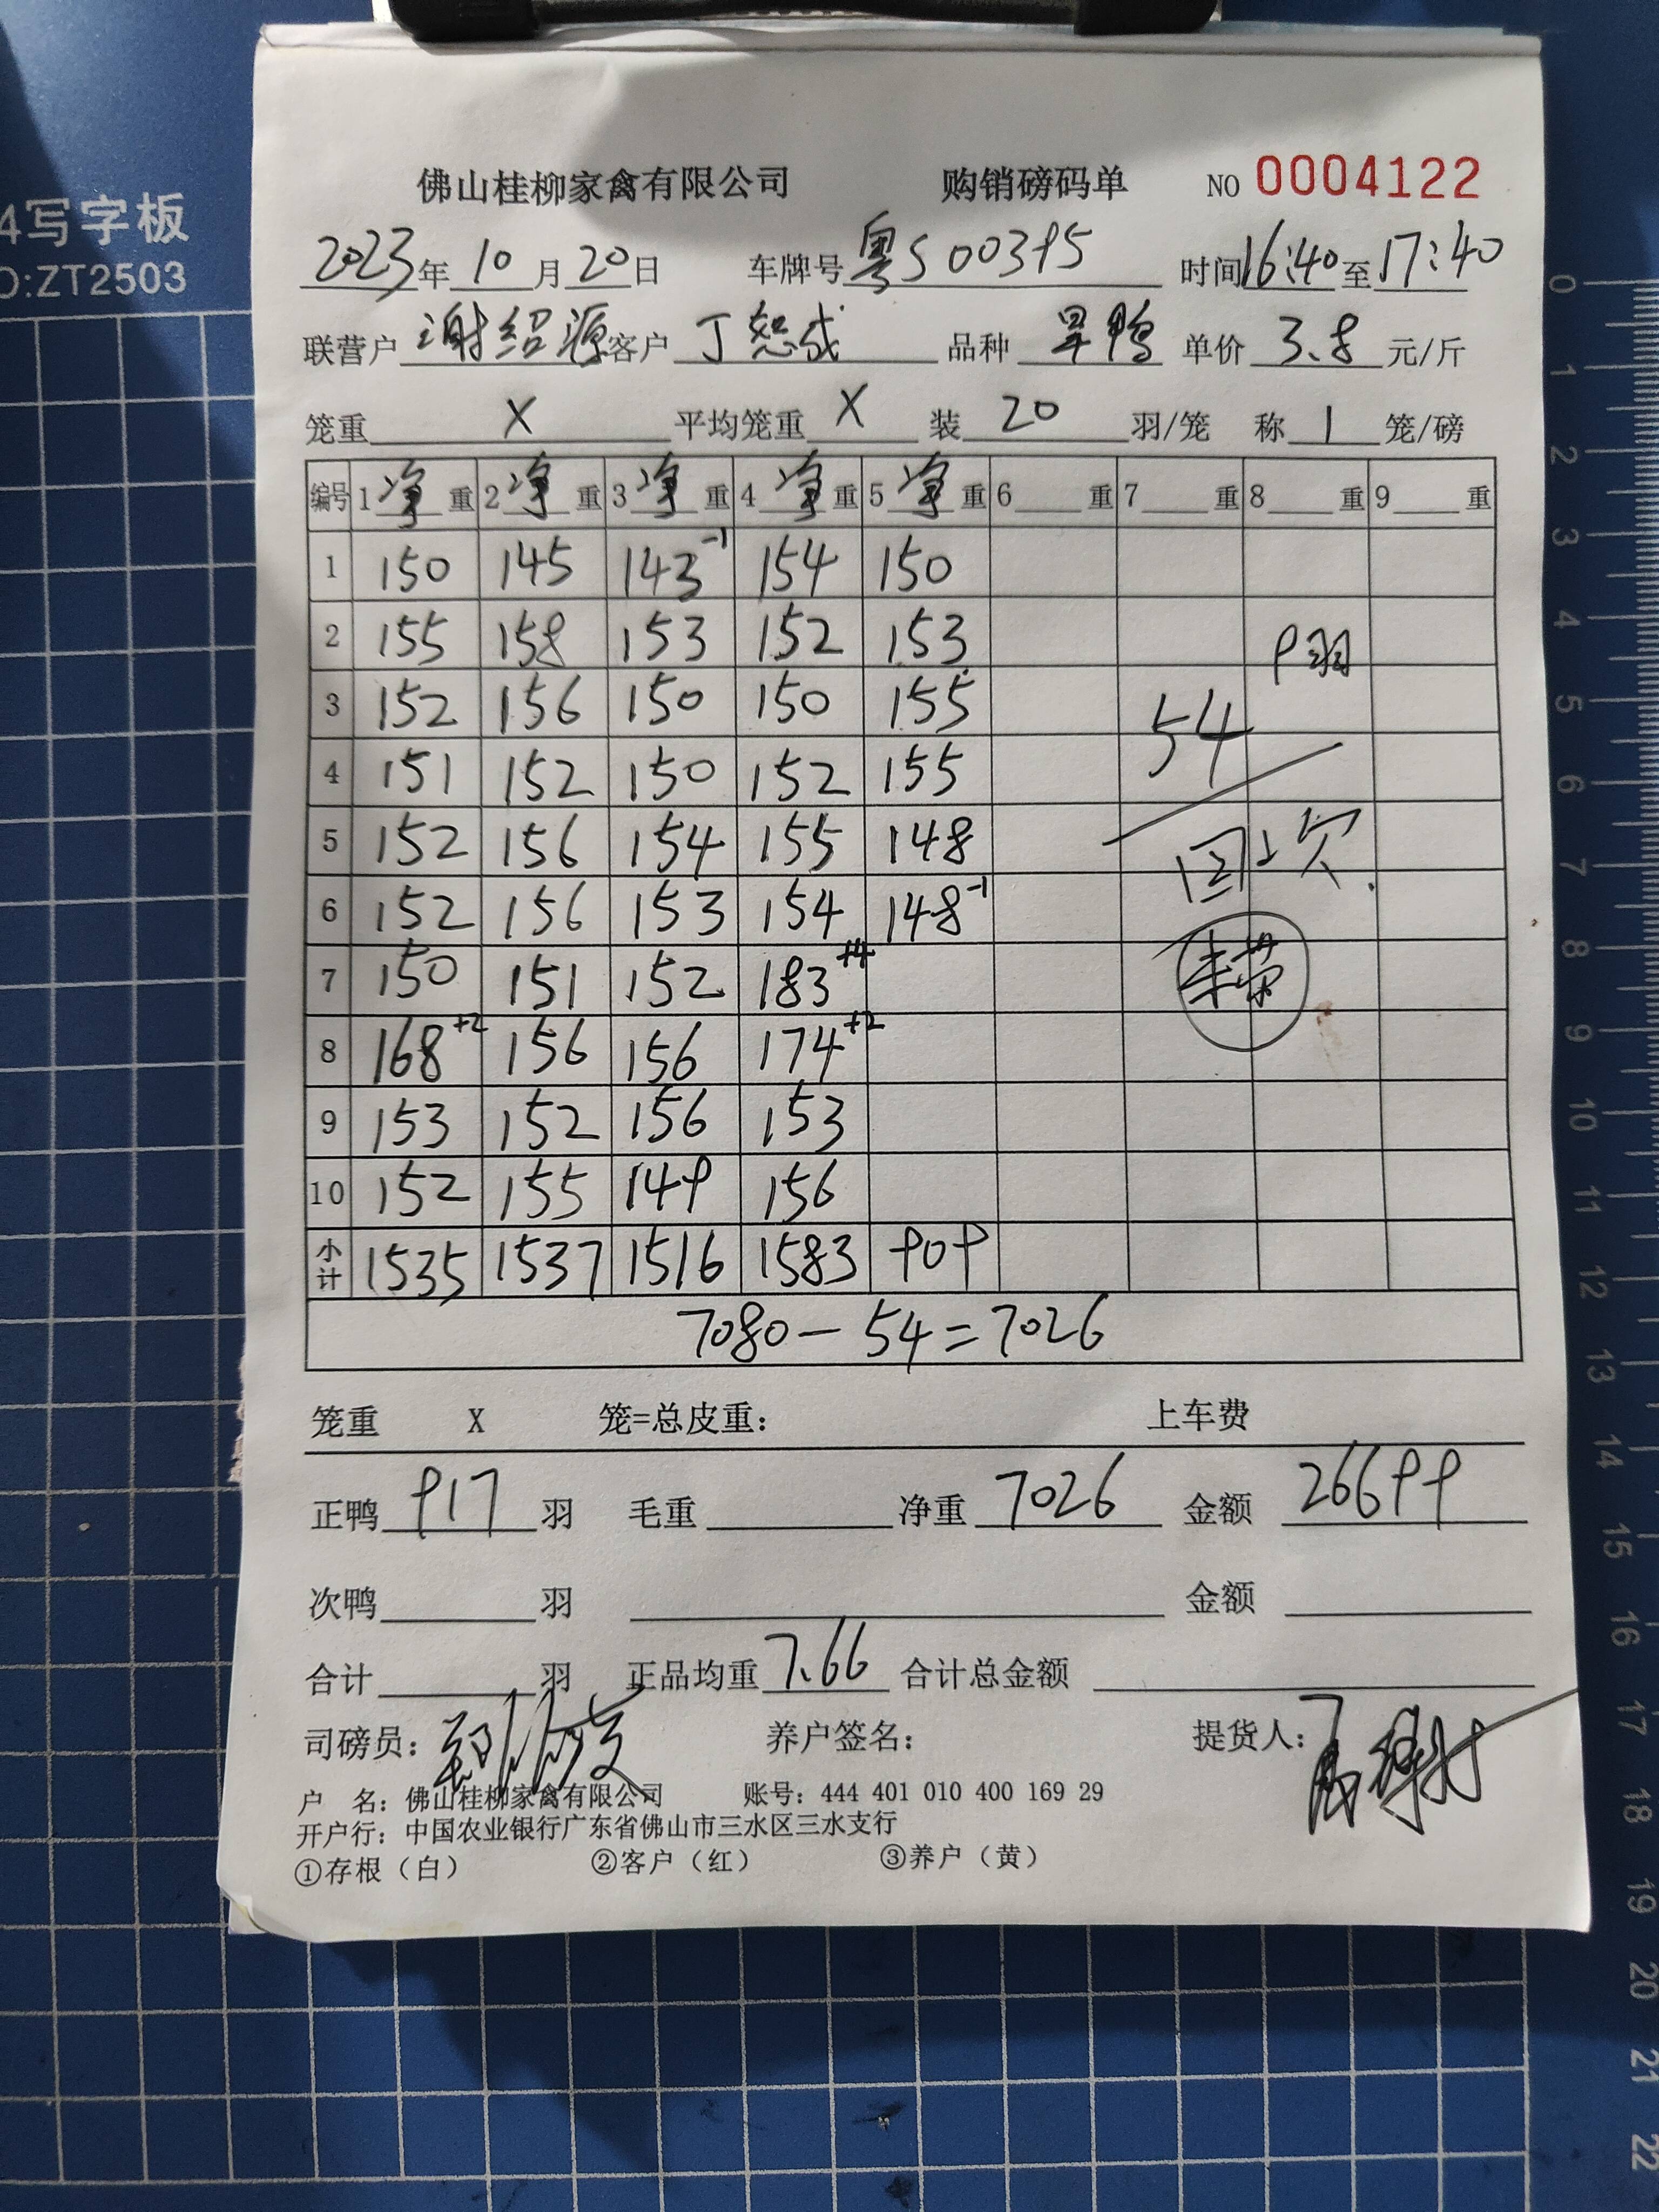 4写字板
O:ZT2503
佛山桂柳家禽有限公司 购销磅码单 NO 0004122
2023年10月20日 车牌号 粤S00395 时间16:40至17:40
联营户 谢绍源 客户 丁恕成 品种 旱鸭 单价 3.8 元/斤
笼重 X 平均笼重 X 装 20 羽/笼 称 1 笼/磅
编号 1净重 2净重 3净重 4净重 5净重 6重 7重 8重 9重
1 150 145 143-1 154 150
2 155 158 153 152 153 9羽
3 152 156 150 150 155 54
4 151 152 150 152 155
5 152 156 154 155 148 回欠
6 152 156 153 154 148-1
7 150 151 152 183+4
8 168+2 156 156 174+2
9 153 152 156 153
10 152 155 149 156
小计 1535 1537 1516 1583 909
7080-54=7026
笼重 X 笼=总皮重: 上车费
正鸭 917 羽 毛重 净重 7026 金额 26699
次鸭 羽 金额
合计 羽 正品均重 7.66 合计总金额
司磅员: 养户签名: 提货人:
户 名: 佛山桂柳家禽有限公司 账号: 444 401 010 400 169 29
开户行: 中国农业银行广东省佛山市三水区三水支行
①存根（白） ②客户（红） ③养户（黄）
0
1
2
3
4
5
6
7
8
9
10
11
12
13
14
15
16
17
18
19
20
21
22